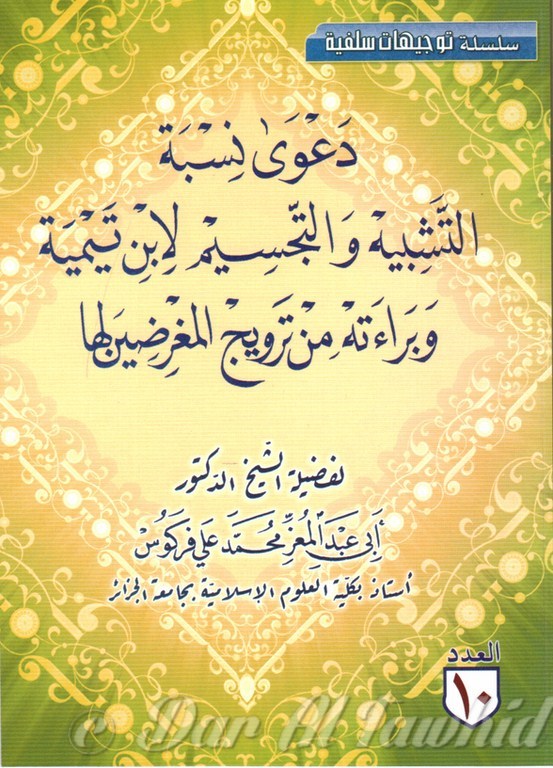 سلسلة توجيهات سلفية
دَعْوَى نِسْبَة
التَّشْبِيهْ وَالتَّجسِيمْ لِابْنِ تَيْمِيَة
وَبَرَاءَتهْ مِنْ تَرَوِيج المغْرضِينَ لها
لفضيلة الشّيخ الدكتور
أبي عَبْد المُعِزّ محمّد علي فركوُس
أستاذ بكليّة العلوم الإسلاميّة بجامعة الجزائر
العدد
١٠
© Dar Al Tawhid